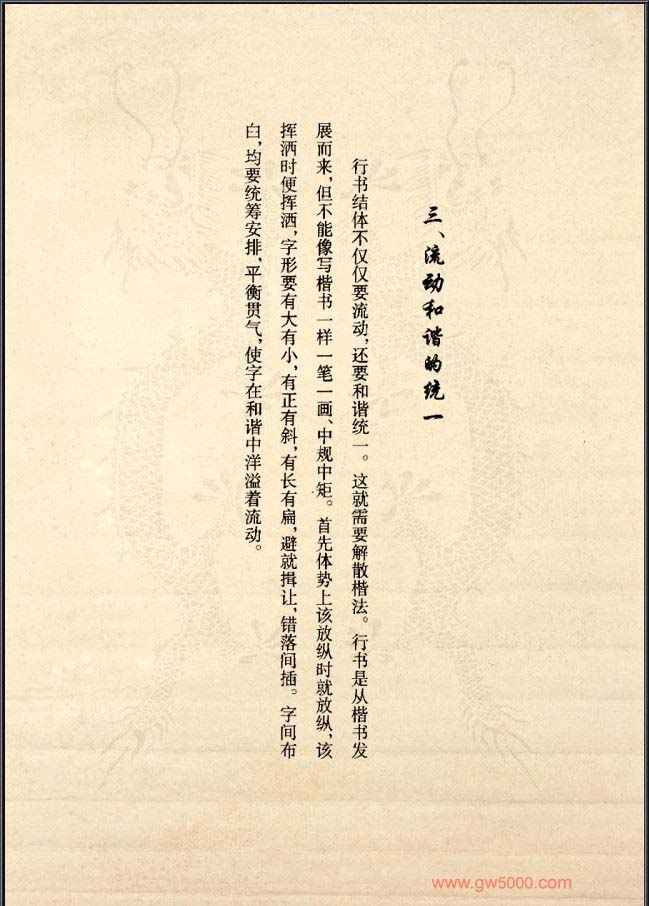 三、流动和谐的统一
行书结体不仅仅要流动,还要和谐统一。这就需要解散楷法。行书是从楷书发
展而来,但不能像写楷书一样一笔一画、中规中矩。首先体势上该放纵时就放纵,该
挥洒时便挥洒,字形要有大有小,有正有斜,有长有扁,避就揖让,错落间插。字间布
白,均要统筹安排,平衡贯气,使字在和谐中洋溢着流动。
www.gw5000.com